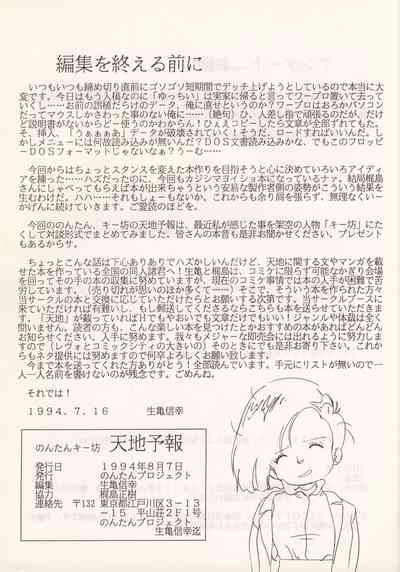 編集を終える前に
いつもいつも締め切り直前にゴソゴソ短期間でデッチ上げようとしているので本当に大
変です。今日はもう入稿なのに「ゆっちい」は実家に帰ると言ってワープロ置いて去って
いくし……お前の誤植だらけのデータ、俺に直せというのか？ワープロはおろかパソコン
だってマウスしかさわった事のない俺に……（絶句）ひ、人差し指で頑張るのだが、だけ
ど説明書がないからどー使うのかわからん！ひぇぇコピーしたら文章が全部ずれてもた。
そ、挿入。「うぁぁぁあ」データが破壊されていく！そうだ、ロードすればいいんだ。し
かしメニューには何故読み込みが無いんだ？ＤＯＳ文書読み込みかな、でもこのフロッピ
ーＤＯＳフォーマットじゃないなぁ？うーむ……
今回からはちょっとスタンスを変えた本作りを目指そうと心に決めていろいろアイディ
アを練った……ハズだったのに、今回もカジシマイイショ本になっているトナッ。結局梶島
さんにしゃべってもらえば本が出来ちゃうという安易な製作者側の姿勢がこういう結果を
生むわけだ。ハハ……それもしょーもないか。これからも余り肩を張らず、無理なくいー
かげんに続けていきます。ご愛読のほどを。
今回ののんたん、キー坊の天地予報は、最近私が感じた事を架空の人物「キー坊」にた
くして対談形式でまとめてみました。皆さんの本音も是非お聞かせください。プレゼント
もあるからサ。
ちょっとこんな話は下心ありありでハズかしいんだけど、天地に関する文やマンガを載
せた本を作っている全国の同人諸君へ！生亀と梶島は、コミケに限らず可能なかぎり会場
を回ってその手の本の収集に努めていますが、現在のコミケ事情では本の入手が困難で苦
労しています。（売り切れが思いのほか多くて……）そこで、そういう本を作っている方で
当サークルの本と交換に応じていただけたらとお願いする次第です。当サークルブースに
来ていただければ有難いし、もし郵送してくださるならこちらも本を送らせていただきま
す。「天地」が載っていればＨでもやおいでも文章だけでもいい！ジャンルや体裁は全く
問いません。読者の方も、こんな楽しい本を見つけたとかおすすめの本があればどんどん
お知らせください。入手に努めます。我々もメジャーな即売会には出れるように努力しま
すので（レヴォとコミックシティの大きいの）そのときにでも是非お寄り下さい。これか
らもネタ提供には努めますので何卒よろしくお願い致します。
今まで本を送ってくれた方ありがとう！全部読んでいます。手元にリストが無いので一
人一人名前を書けないのが残念です。ごめんね。
それでは！
１９９４．７．１６　生亀信幸
のんたんキー坊　天地予報
発行日　１９９４年８月７日
発行　のんたんプロジェクト
編集　生亀信幸
協力　梶島正樹
連絡先　〒132　東京都江戸川区３－１３
－１５　平山荘２Ｆ１号
のんたんプロジェクト
生亀信幸迄